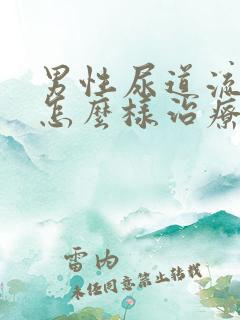 男性尿道流
怎麼樣治療
雷内
未经同意禁止转载